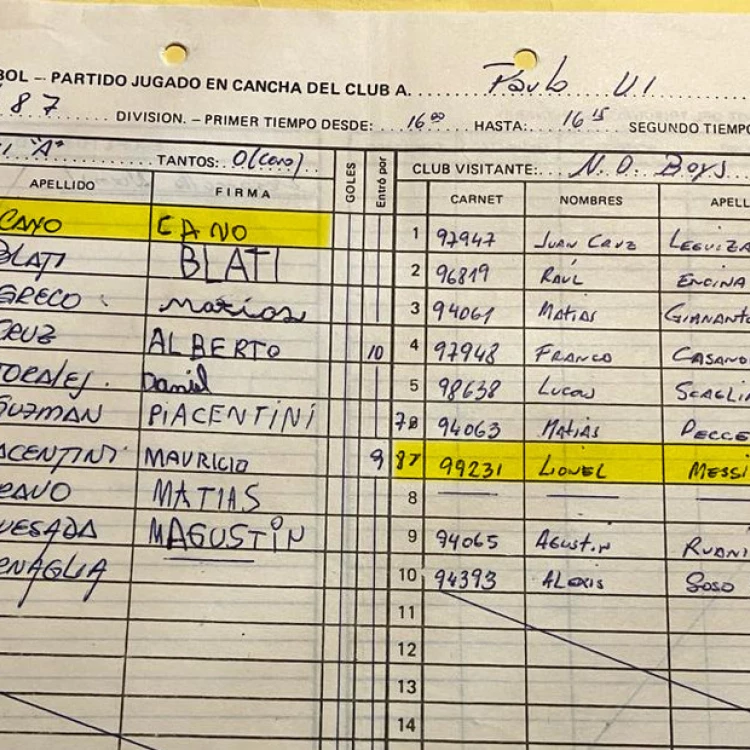 BOL — PARTIDO JUGADO EN CANCHA DEL CLUB A. Paulo VI
87 DIVISION. – PRIMER TIEMPO DESDE: 16 00 HASTA: 16 15 SEGUNDO TIEMPO
"A" TANTOS: 0 (cero) GOLES Entró por CLUB VISITANTE: N. O. Boys
APELLIDO FIRMA CARNET NOMBRES APELL
CANO CANO 1 97947 JUAN CRUZ LEGUIZA
BLATI BLATI 2 96819 RAÚL ENCINA
GRECO Marios 3 94061 MATIAS GIANANTO
CRUZ ALBERTO 10 4 97948 FRANCO CASANO
TORALES. Daniel 5 98638 LUCAS SCAGLIA
GUZMAN PIACENTINI 7 94063 MATIAS PECCE
ACENTINI MAURICIO 9 8 99231 LIONEL MESSI
BRAVO MATIAS 8
QUESADA MAGUSTIN 9 94065 AGUSTIN RUANI
ENAGLIA 10 94393 ALEXIS SOSO
11
12
13
14